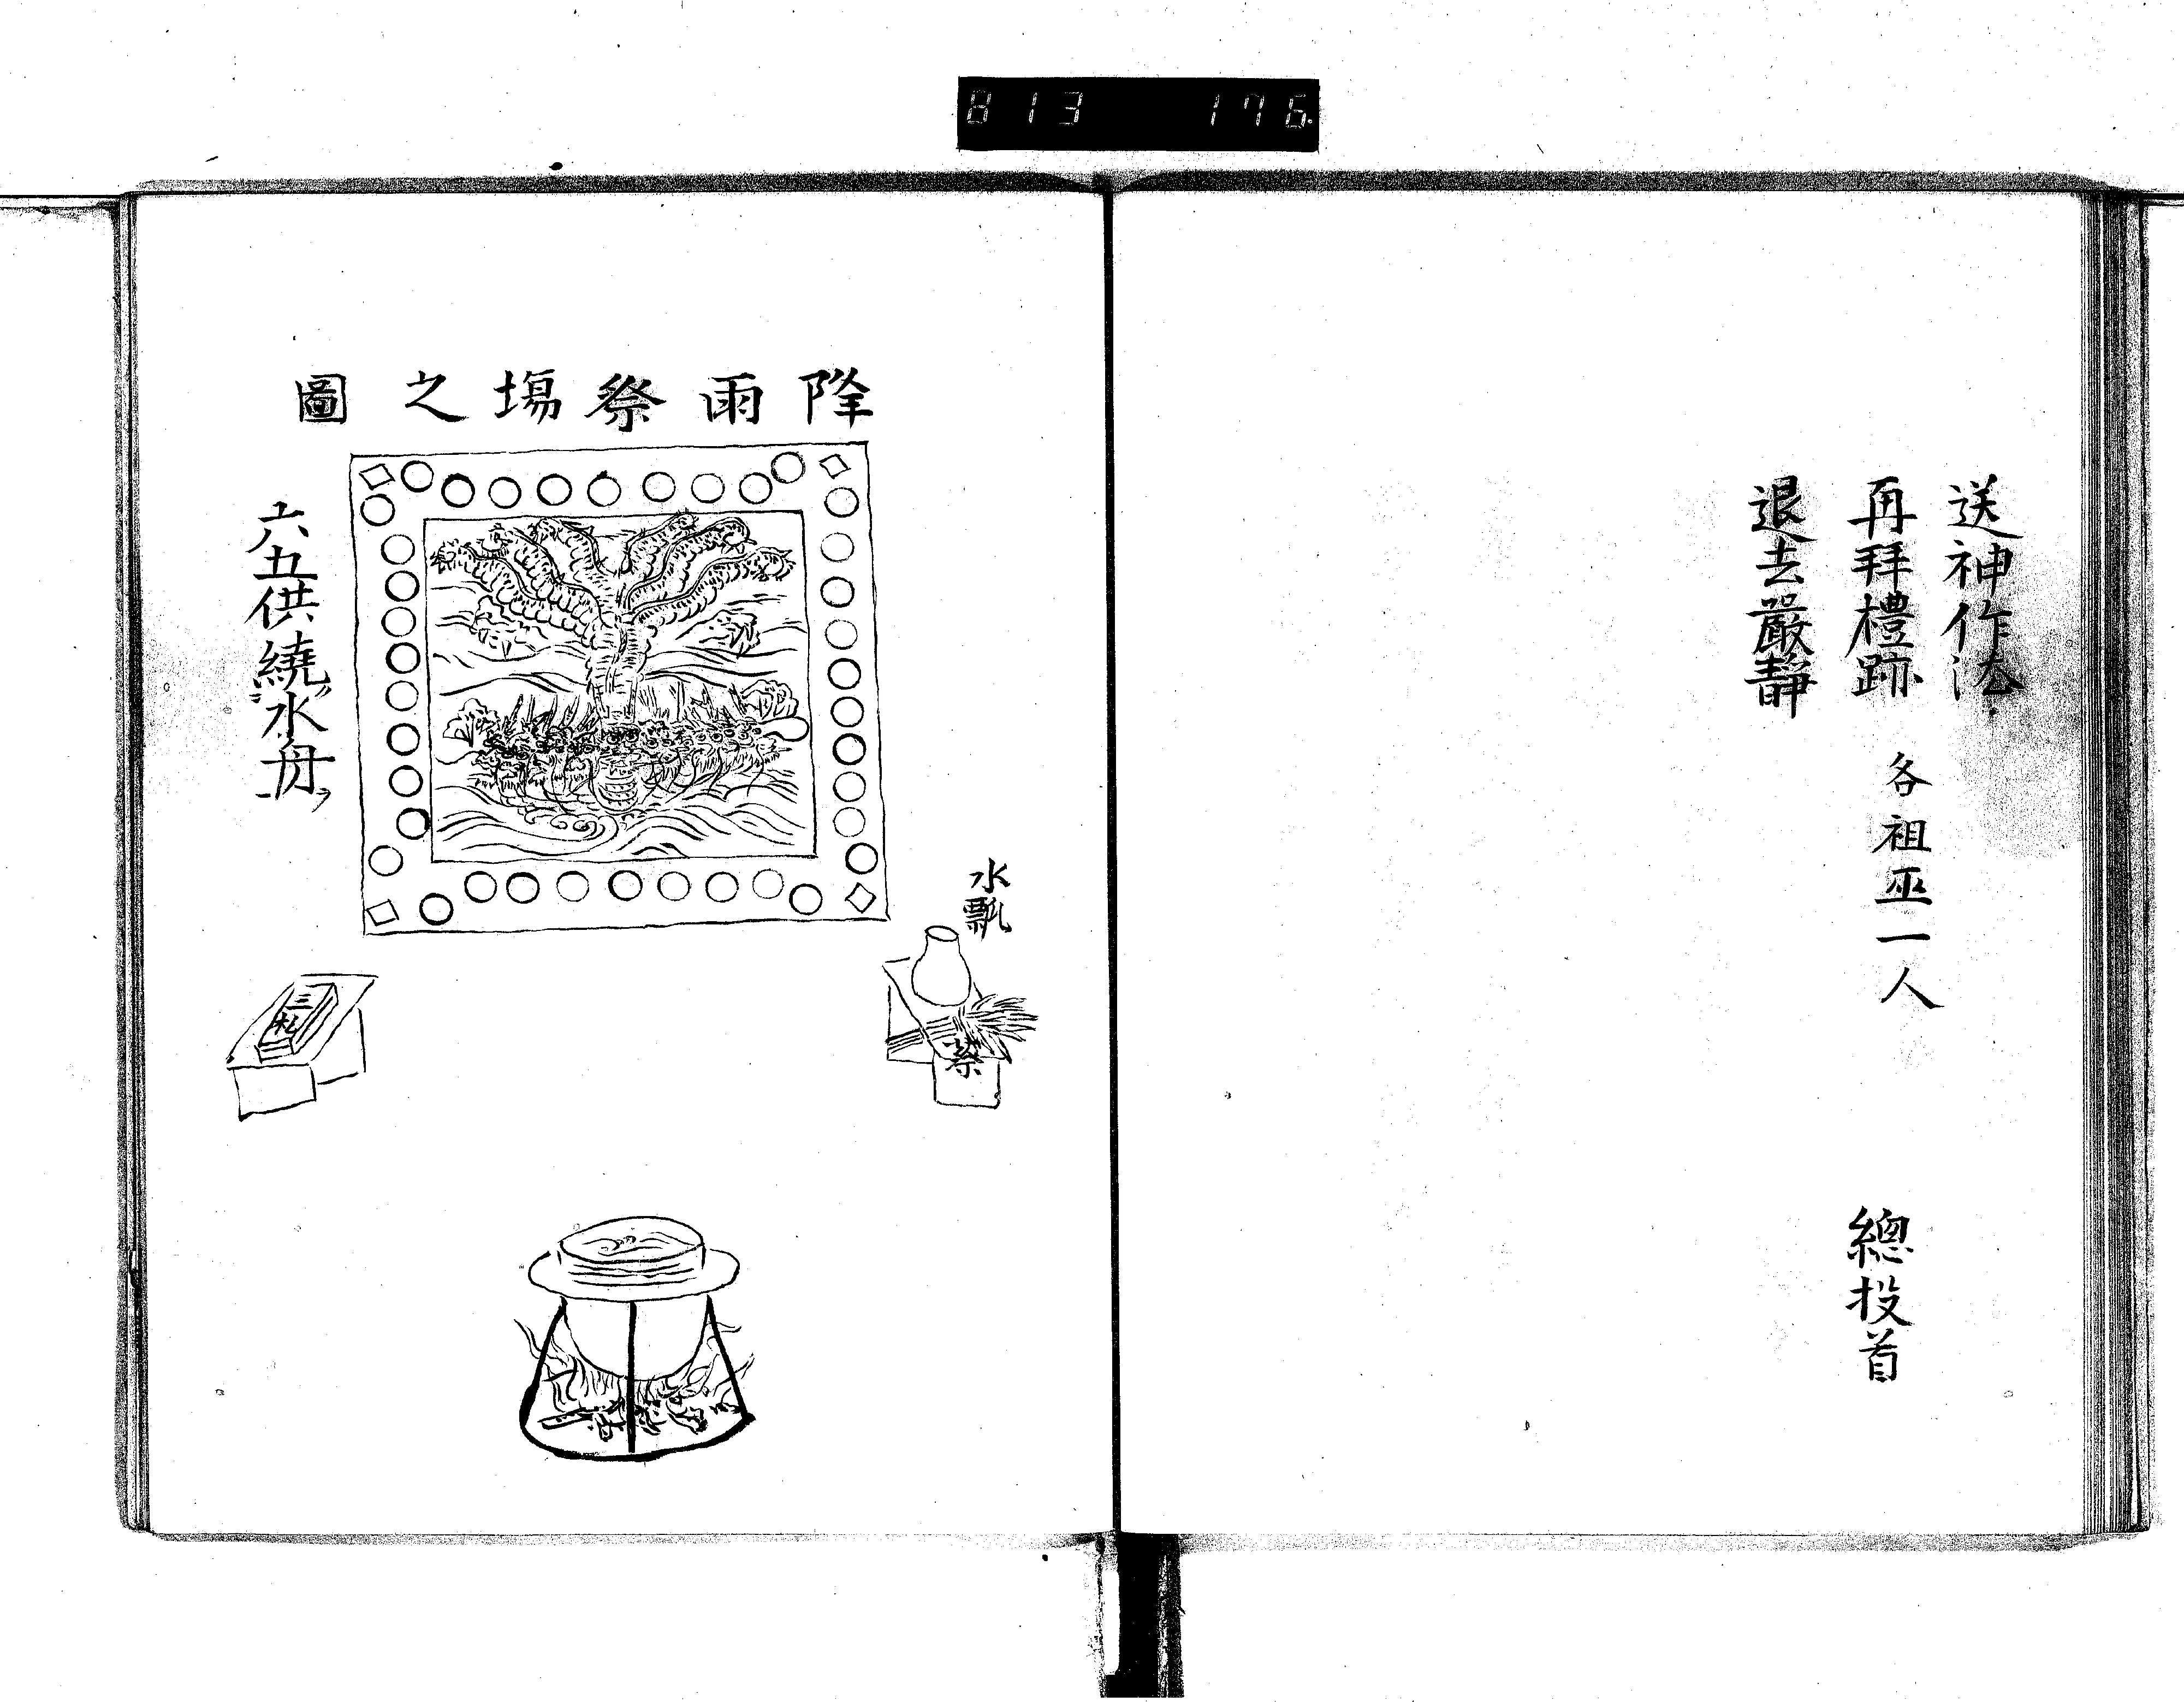 813 176
送神作法
再拜禮跡 各祖巫一人 總投首
退去嚴靜
降雨祭場之圖
六五供繞水毋
水瓢
三札